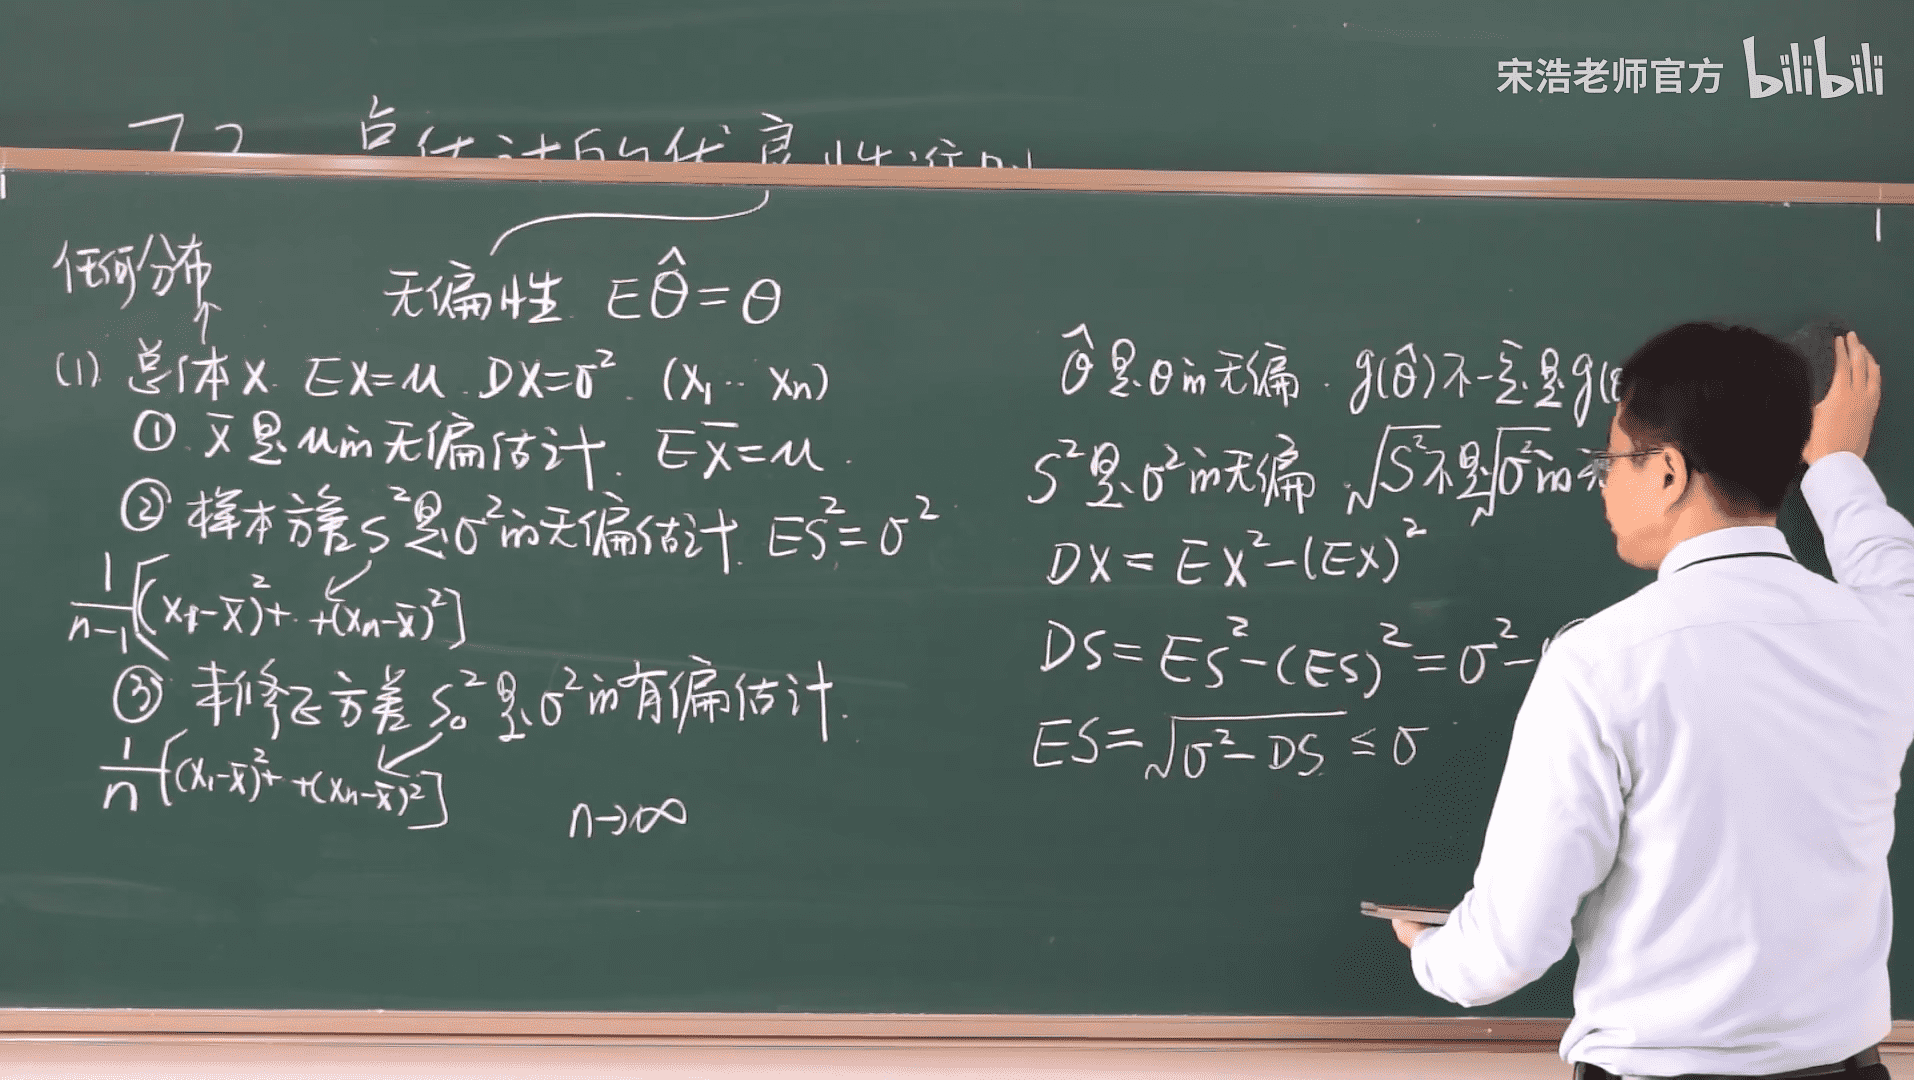 宋浩老师官方 bilibili
7.2 点估计的优良性准则
任何分布
无偏性 Eθ̂=θ
(1) 总体X. EX=μ. DX=σ². (X₁…Xn)
① X̄是μ的无偏估计. EX̄=μ.
② 样本方差S²是σ²的无偏估计. ES²=σ²
1/(n-1)[(X₁-X̄)²+…+(Xn-X̄)²]
③ 未修正方差S₀²是σ²的有偏估计.
1/n[(X₁-X̄)²+…+(Xn-X̄)²]
n→∞
θ̂是θ的无偏. g(θ̂)不一定是g(
S²是σ²的无偏. √S²不是√σ²的
DX=EX²-(EX)²
DS=ES²-(ES)²=σ²-
ES=√(σ²-DS) ≤ σ